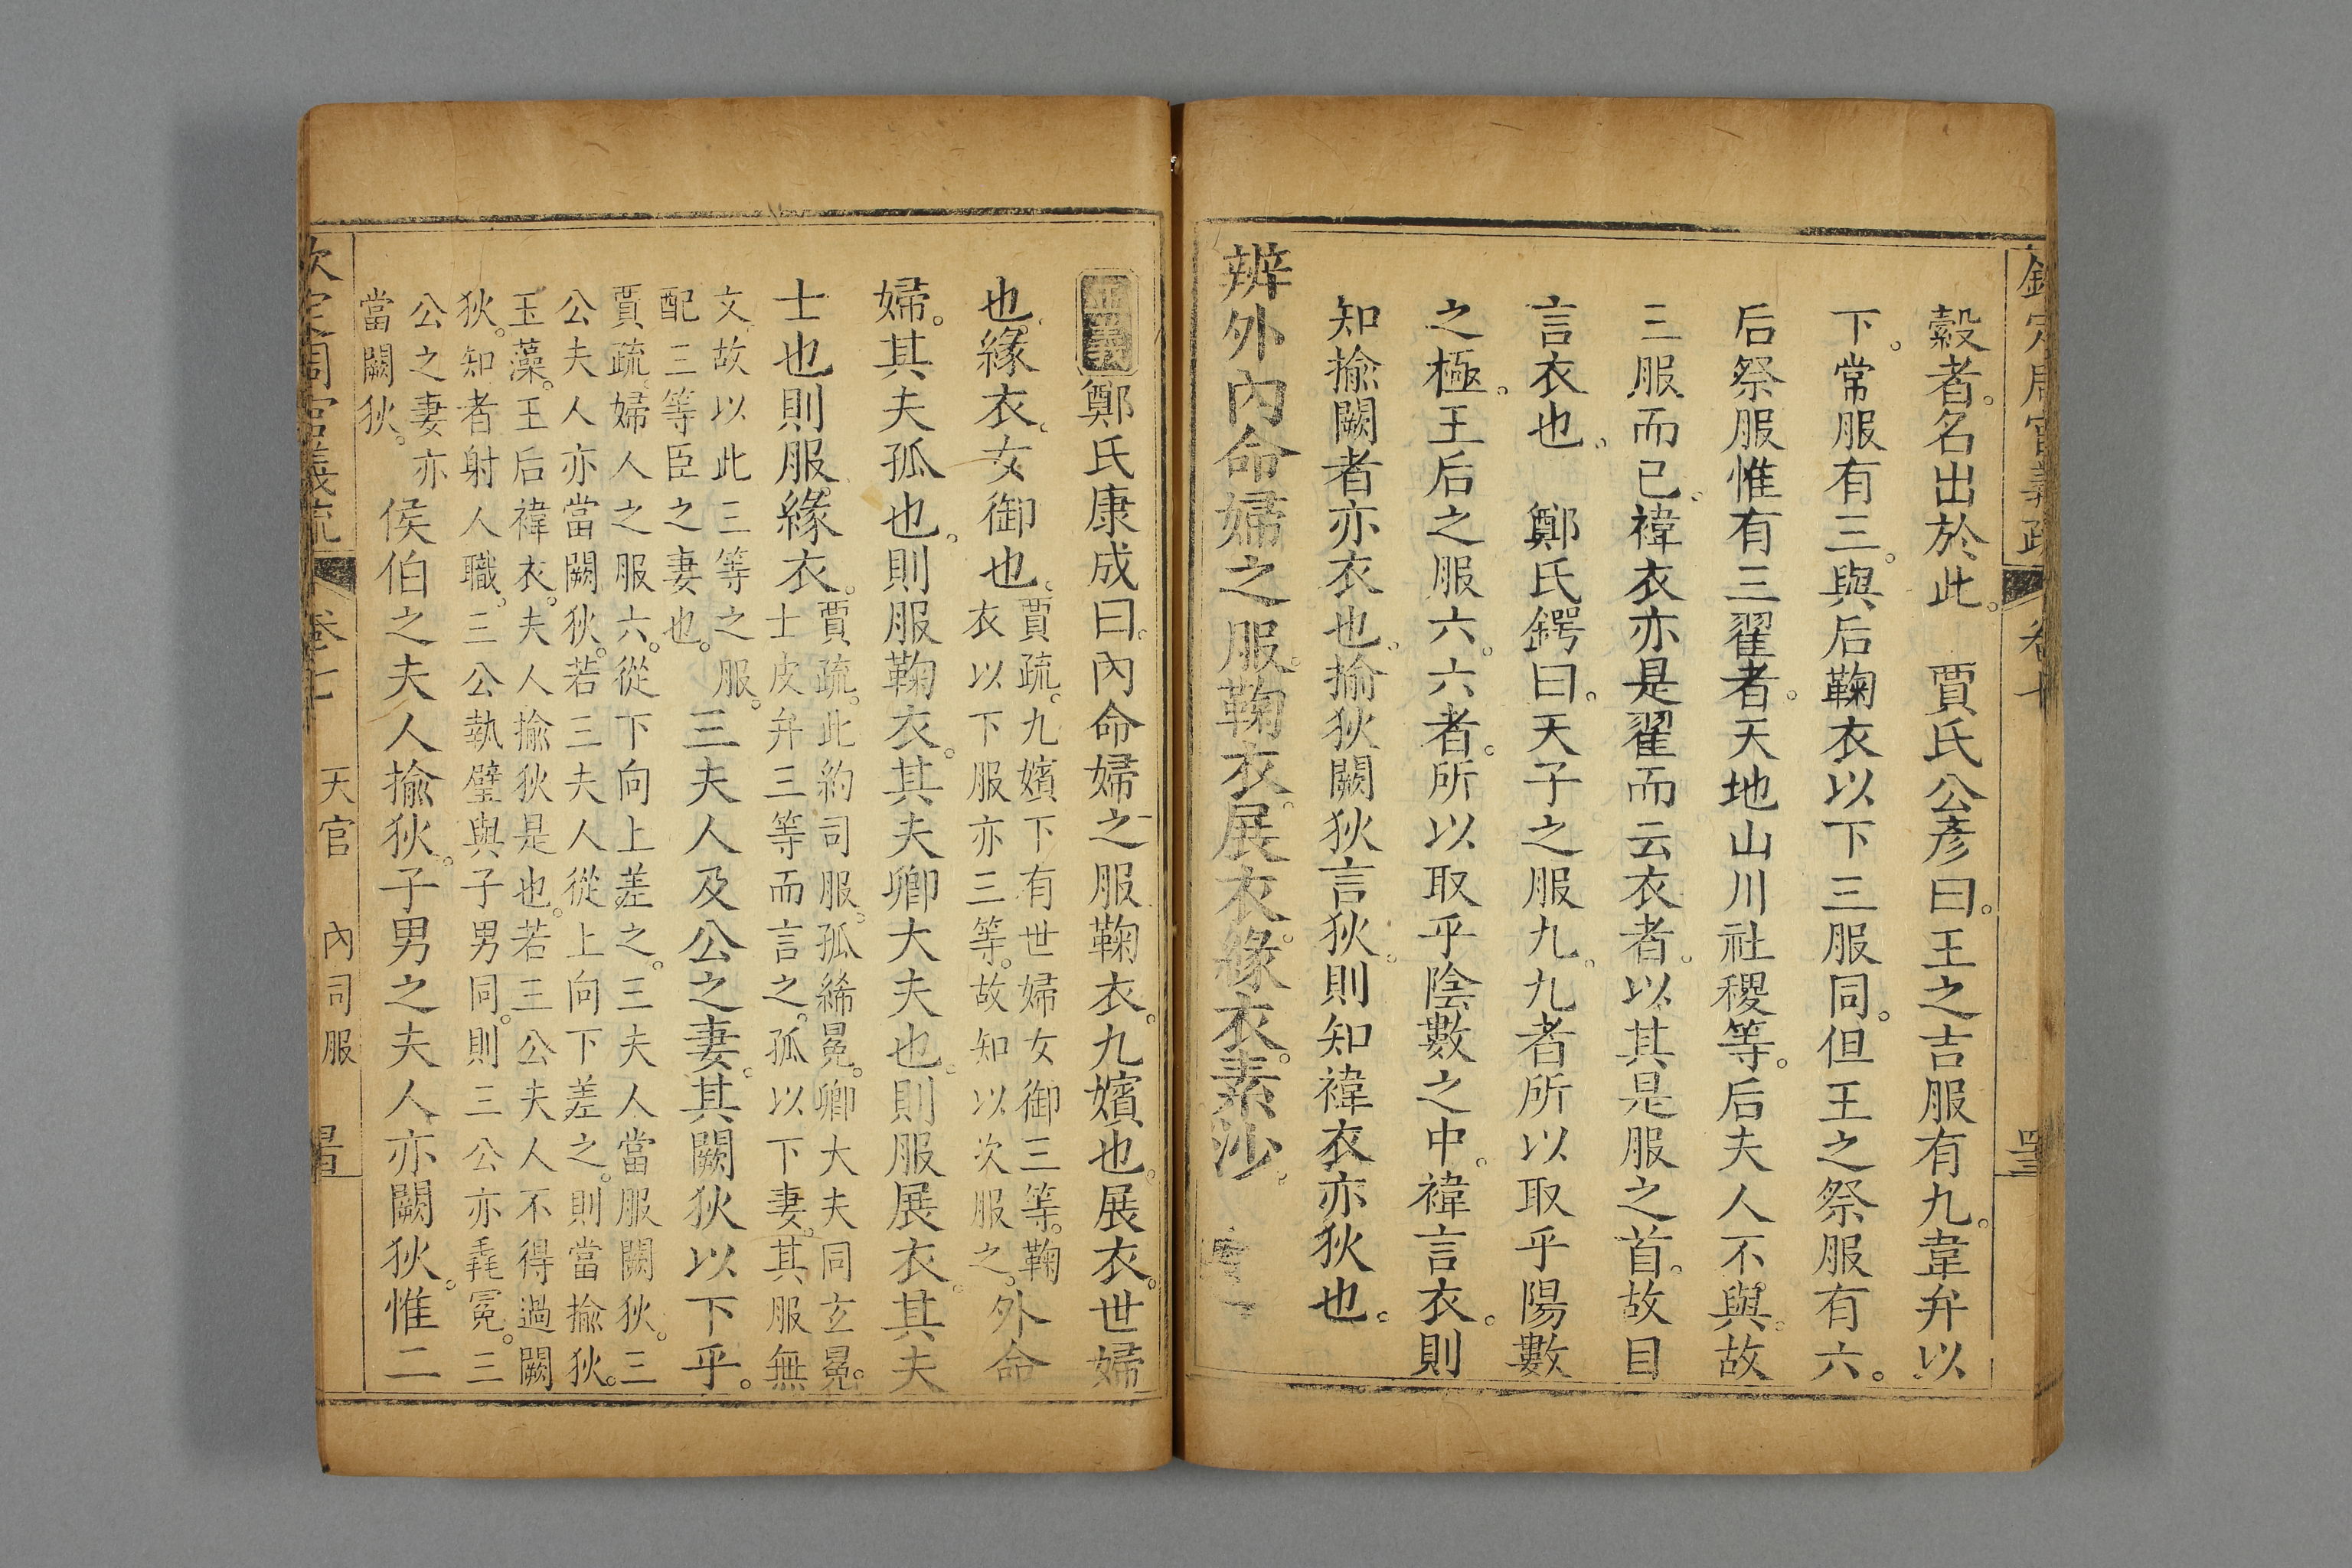 欽定周官義疏 卷七
縠者。名出於此。 賈氏公彥曰。王之吉服有九。韋弁以
下。常服有三。與后鞠衣以下三服同。但王之祭服有六。
后祭服惟有三翟者。天地山川社稷等。后夫人不與。故
三服而已。褘衣亦是翟而云衣者。以其是服之首。故目
言衣也。 鄭氏鍔曰。天子之服九。九者所以取乎陽數
之極。王后之服六。六者。所以取乎陰數之中。褘言衣。則
知揄闕者亦衣也。揄狄闕狄言狄。則知褘衣亦狄也。
辨外內命婦之服。鞠衣。展衣。緣衣。素沙。
正義鄭氏康成曰。內命婦之服鞠衣。九嬪也。展衣。世婦
也。緣衣。女御也。賈疏。九嬪下有世婦女御三等。鞠
衣以下服亦三等。故知以次服之。外命
婦。其夫孤也。則服鞠衣。其夫卿大夫也。則服展衣。其夫
士也則服緣衣。賈疏。此約司服。孤絺冕。卿大夫同玄冕。
士皮弁三等而言之。孤以下妻。其服無
文。故以此三等之服。
配三等臣之妻也。三夫人及公之妻。其闕狄以下乎。
賈疏。婦人之服六。從下向上差之。三夫人當服闕狄。三
公夫人亦當闕狄。若三夫人從上向下差之。則當揄狄。
玉藻。王后褘衣。夫人揄狄是也。若三公夫人不得過闕
狄。知者射人職。三公執璧與子男同。則三公亦毳冕。三
公之妻亦
當闕狄。侯伯之夫人揄狄。子男之夫人亦闕狄。惟二
欽定周官義疏 卷七 天官 內司服